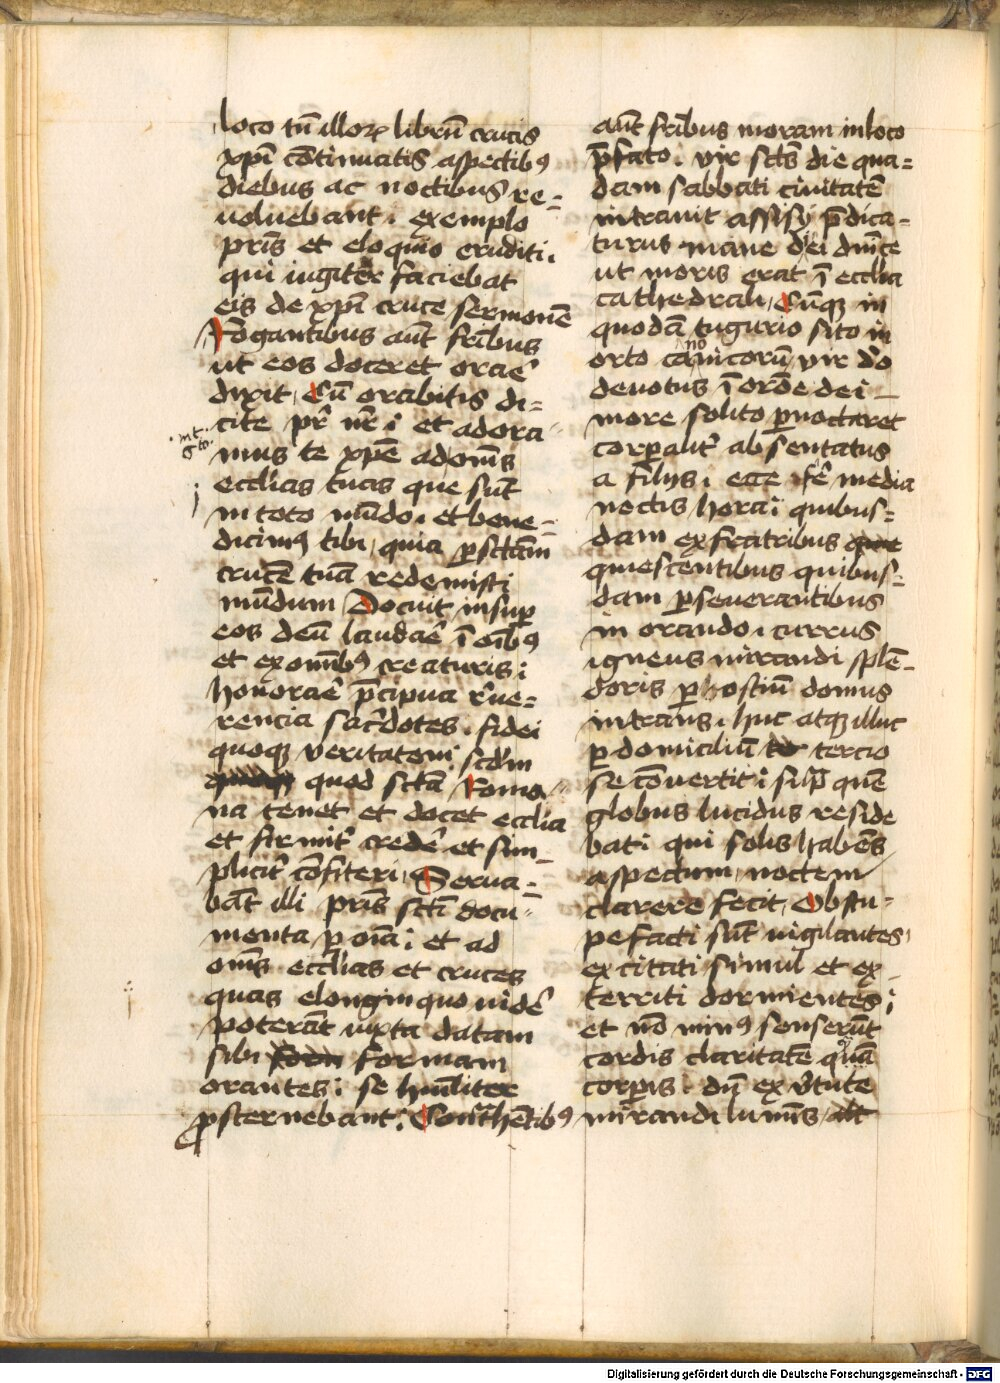 loco tn̄ illoꝝ librū crucis
xp̄i cōtinuatis aspectibꝰ
diebus ac noctibus re⸗
uoluebant · exemplo
pr̄is et eloquio eruditi ·
qui iugiter faciebat
eis de xp̄i cruce sermonē
Rogantibus aūt fr̄ibus
ut eos doceret oraē
dixit, Cū orabitis di⸗
cite pr̄ nr̄ ⁊ et adora⸗
mus te xp̄e ad om̄s
ecclīas tuas que sūt
in toto mūdo · et bene⸗
dicimꝰ tibi, quia ꝑ sctām
crucē tuā redemisti
mūdum Docuit insuꝑ
eos deū laudaē ī oībꝰ
et ex omībꝰ creaturis ⁊
honoraē p̄cipua r̄ue⸗
rencia sac̄dotes · fidei
quoqꝫ veritatem scd̄m
quod sctā Roma⸗
na tenet et docet ecclīa
et firmit̄ credē et sim⸗
plicit̄ cōfiteri, Serua⸗
bāt illi pr̄is sctī docu⸗
menta ꝑ oīa ⁊ et ad
om̄s ecclīas et cruces
quas elonginquo uidē
poterāt iuxta datam
sibi form formam
orantes ⁊ se hūiliter
ꝓsternebant ⁊ Cōm̄hētibꝰ
aūt fr̄ibus moram in loco
p̄fato · vir sctūs die qua⸗
dam sabbati ciuitatē
intrauit assisij p̄dica⸗
turus mane diei dn̄ice
ut moris erat ī ecclīa
cathedrali, Cūqꝫ in
quodā tugurio sito in
orto canonicorū vir dō
deuotus ī orōe dei
more solito ꝑnoctaret
corꝑalit̄ absentatus
a filijs · ecce fē media
noctis hora ⁊ quibus⸗
dam ex fratribus que
quiescentibus quibus⸗
dam ꝑseuerantibus
in orando · currus
igneus mirandi splē⸗
doris ꝑ hostiū domus
intrans · huc atqꝫ illuc
ꝑ domiciliū ter tercio
se cōuertit ⁊ supͣ quē
globus lucidus reside
bat ⁊ qui solis habēs
aspectum, noctem
clarere fecit, Obstu⸗
pefacti sūt uigilantes,
excitati simul et ex
territi dormientes ⁊
et nō minꝰ senserūt
cordis claritatē quā
corꝑis · dū ex v̄tute
mirandi lumīs alt